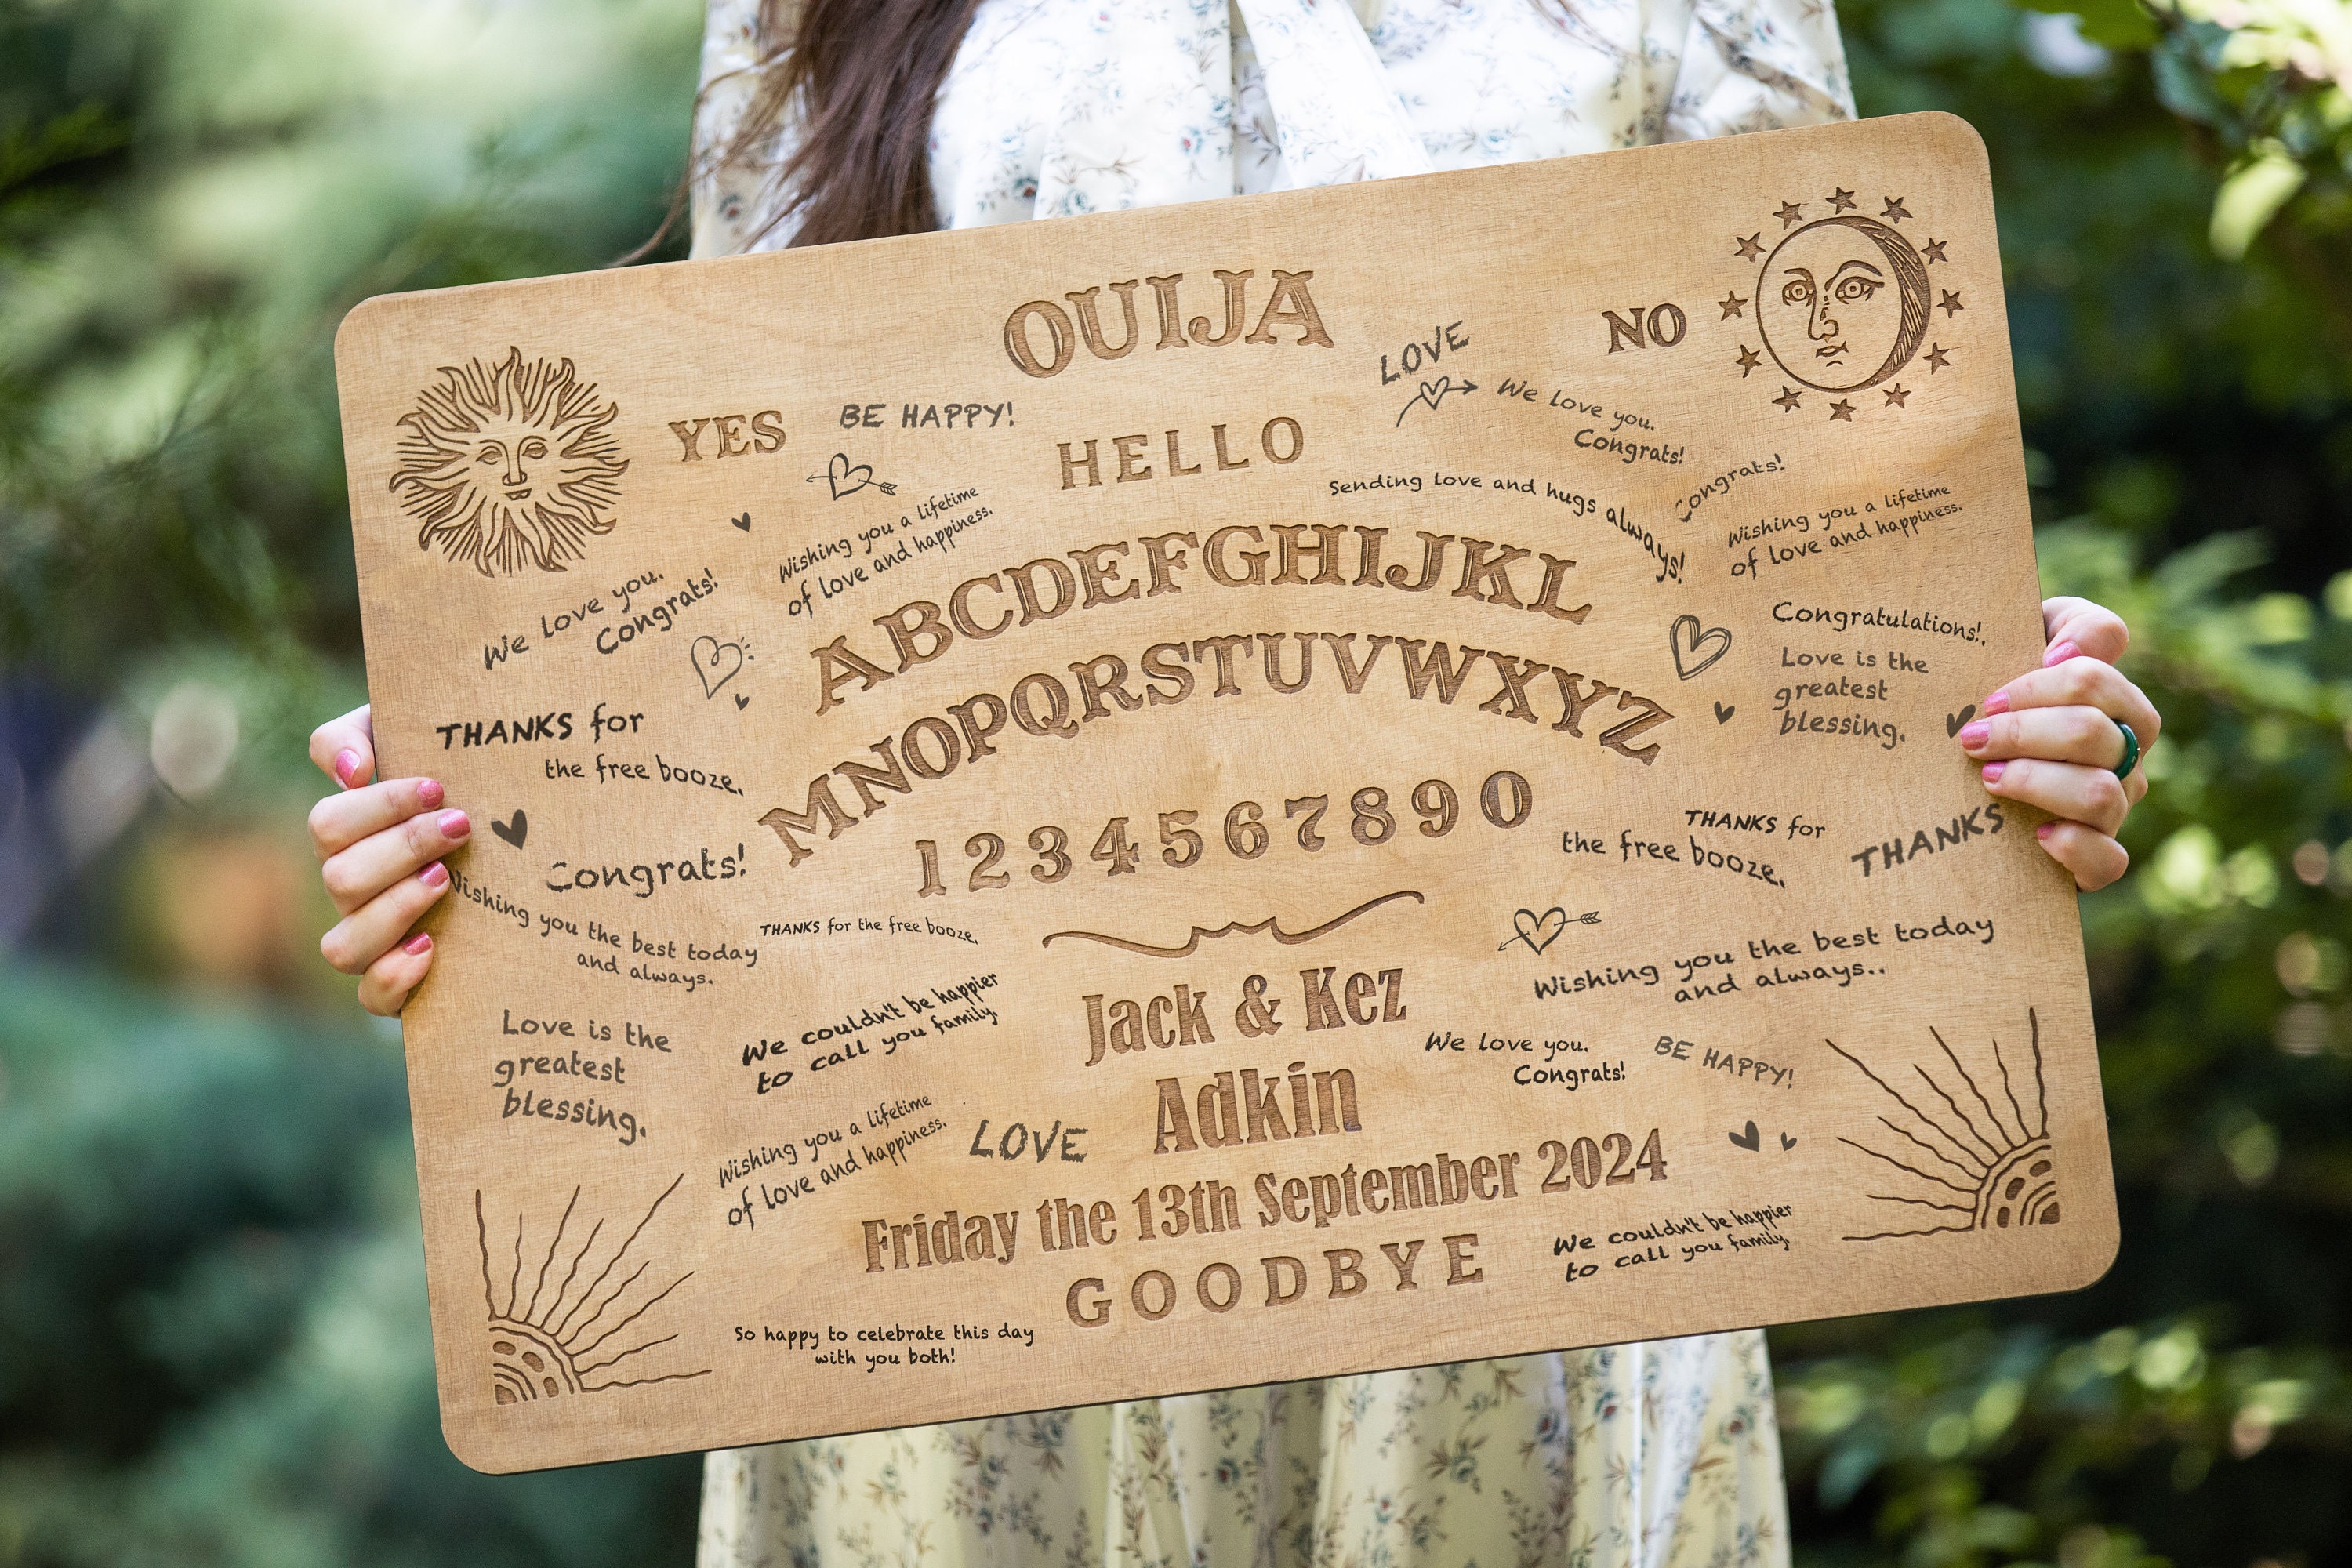 OUIJA
YES
NO
HELLO
BE HAPPY!
LOVE
We love you.
Congrats!
Sending love and hugs always!
Congrats!
Wishing you a lifetime
of love and happiness.
Wishing you a lifetime
of love and happiness.
We love you.
Congrats!
ABCDEFGHIJKL
MNOPQRSTUVWXYZ
1234567890
Congratulations!.
Love is the
greatest
blessing.
THANKS for
the free booze.
Congrats!
Wishing you the best today
and always.
THANKS for the free booze.
THANKS for
the free booze.
THANKS
Wishing you the best today
and always..
Love is the
greatest
blessing.
We couldn't be happier
to call you family.
Jack & Kez
Adkin
Friday the 13th September 2024
GOODBYE
We love you.
Congrats!
BE HAPPY!
Wishing you a lifetime
of love and happiness.
LOVE
We couldn't be happier
to call you family.
So happy to celebrate this day
with you both!